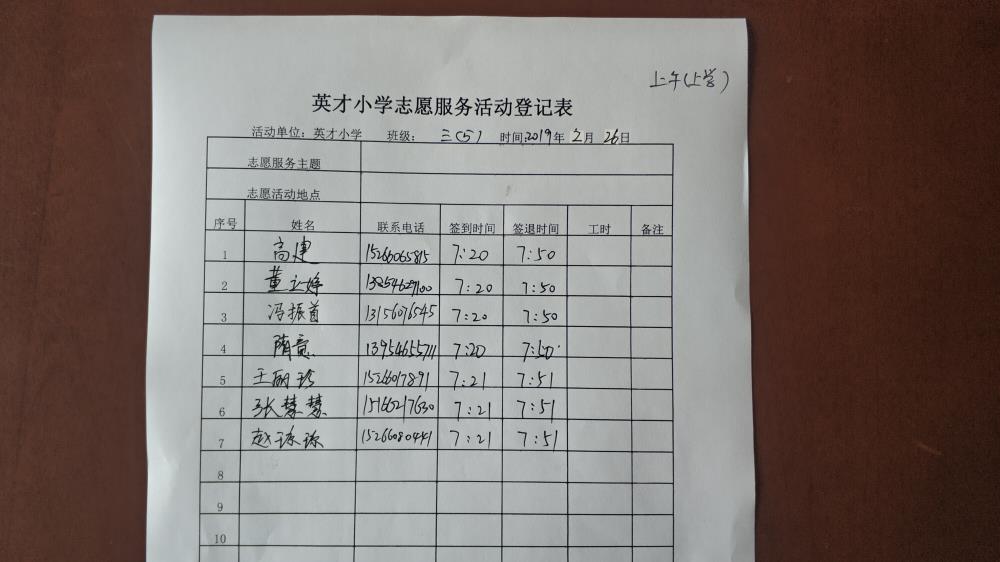 上午(上学)
英才小学志愿服务活动登记表
活动单位：英才小学 班级： 三(5) 时间:2019年 2月 26日
志愿服务主题
志愿活动地点
序号 姓名 联系电话 签到时间 签退时间 工时 备注
1 高建 15266065815 7:20 7:50
2 董立婷 13954627100 7:20 7:50
3 冯振首 13156076545 7:20 7:50
4 隋意 13954655711 7:20 7:50
5 王丽珍 15266017891 7:21 7:51
6 张慧慧 15166217630 7:21 7:51
7 赵琼琼 15266080441 7:21 7:51
8
9
10